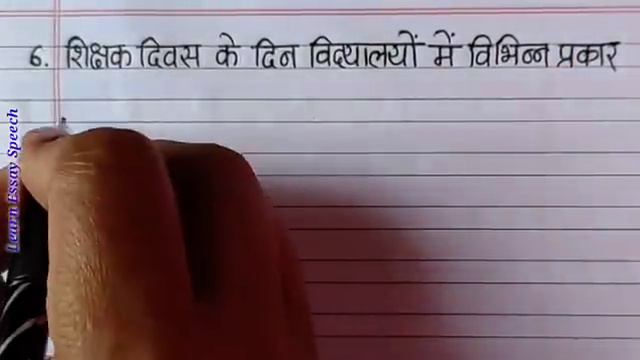 6. शिक्षक दिवस के दिन विद्यालयों में विभिन्न प्रकार
Learn Essay Speech